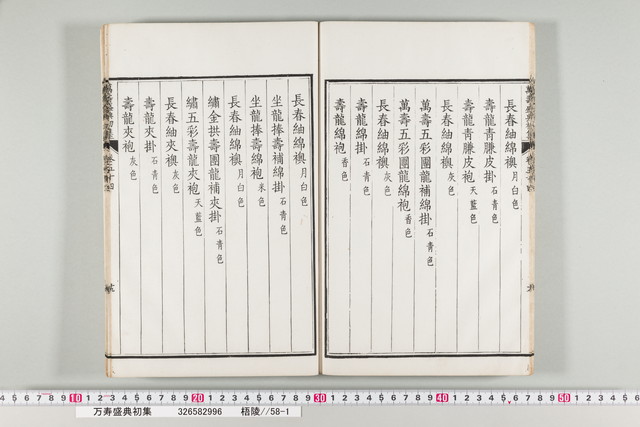 長春紬綿襖月白色
壽龍青膁皮掛石青色
壽龍青膁皮袍天藍色
長春紬綿襖灰色
萬壽五彩團龍補綿掛石青色
萬壽五彩團龍綿袍香色
長春紬綿襖灰色
壽龍綿掛石青色
壽龍綿袍香色
長春紬綿襖月白色
坐龍捧壽補綿掛石青色
坐龍捧壽綿袍米色
長春紬綿襖月白色
繡金拱壽團龍補夾掛石青色
繡五彩壽龍夾袍天藍色
長春紬夾襖灰色
壽龍夾掛石青色
壽龍夾袍灰色
10 20 30 40 50
万寿盛典初集 326582996 梧陵//58-1